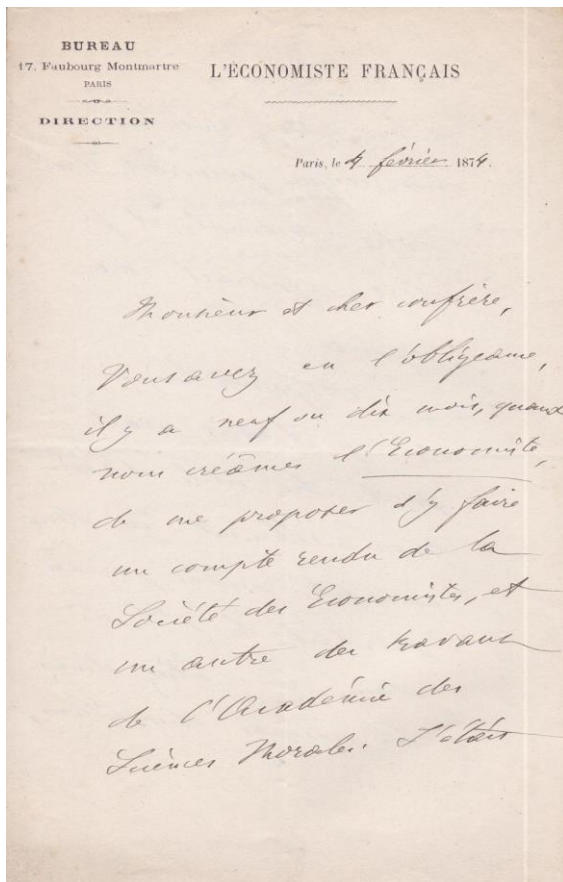 BUREAU
17, Faubourg Montmartre
PARIS
DIRECTION
L'ÉCONOMISTE FRANÇAIS
Paris, le 4 février 1874.
Monsieur et cher confrère,
Vous avez eu l'obligeance,
il y a neuf ou dix mois, quand
nous créâmes l'Economiste,
de me proposer d'y faire
un compte rendu de la
Société des Économistes, et
un autre des travaux
de l'Académie des
Sciences Morales. J'étais